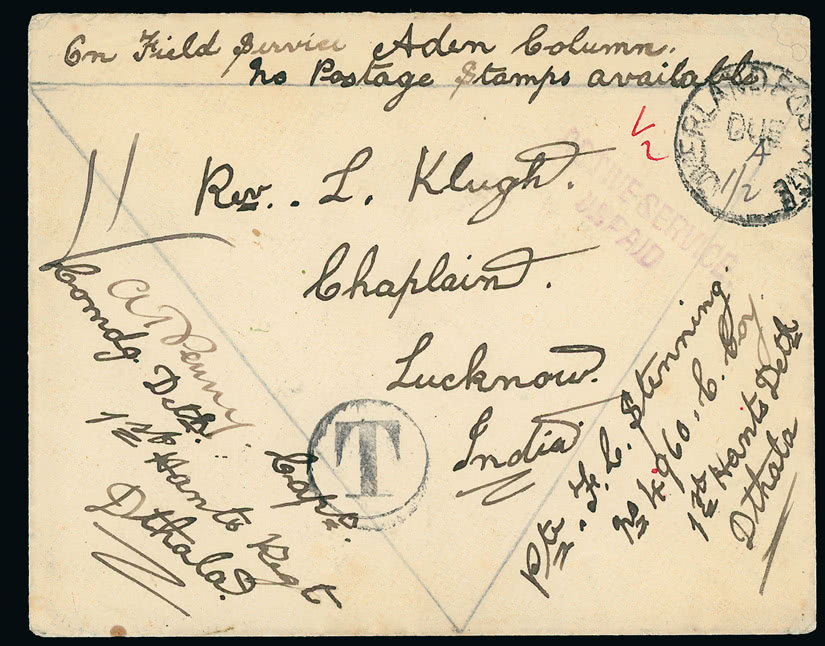 On Field Service Aden Column.
No Postage Stamps available
OVERLAND POSTAGE
DUE
4
1/2
1/2
ON ACTIVE SERVICE
UNPAID
Rev. . L. Klugh.
Chaplain.
Lucknow.
India
T
A T Penny
Capt.
Comdg. Deth.
1st Hants Regt
Dthala.
Pte. F. C. Stenning.
No 4960. C. Coy.
1st Hants Deth
Dthala